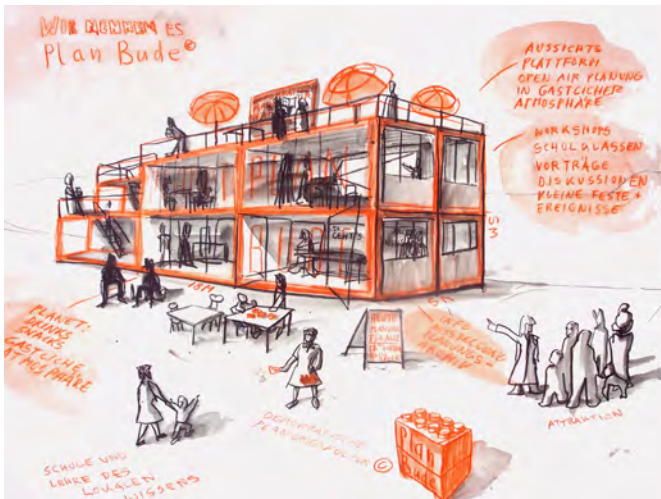 WIR NENNEN ES
Plan Bude
AUSSICHTS
PLATTFORM
OPEN AIR PLANUNG
IN GASTLICHER
ATMOSPHÄRE
WORKSHOPS
SCHULKLASSEN
VORTRÄGE
DISKUSSIONEN
KLEINE FESTE +
EREIGNISSE
18M
5M
PLANET:
DRINKS
SNACKS
GASTLICHE
ATMOSPHÄRE
HEUTE
PLANUNG
ATTRAKTION
DEMOKRATISCHE
©
Plan
Bude
SCHULE UND
LEHRE DES
LOKALEN
WISSENS